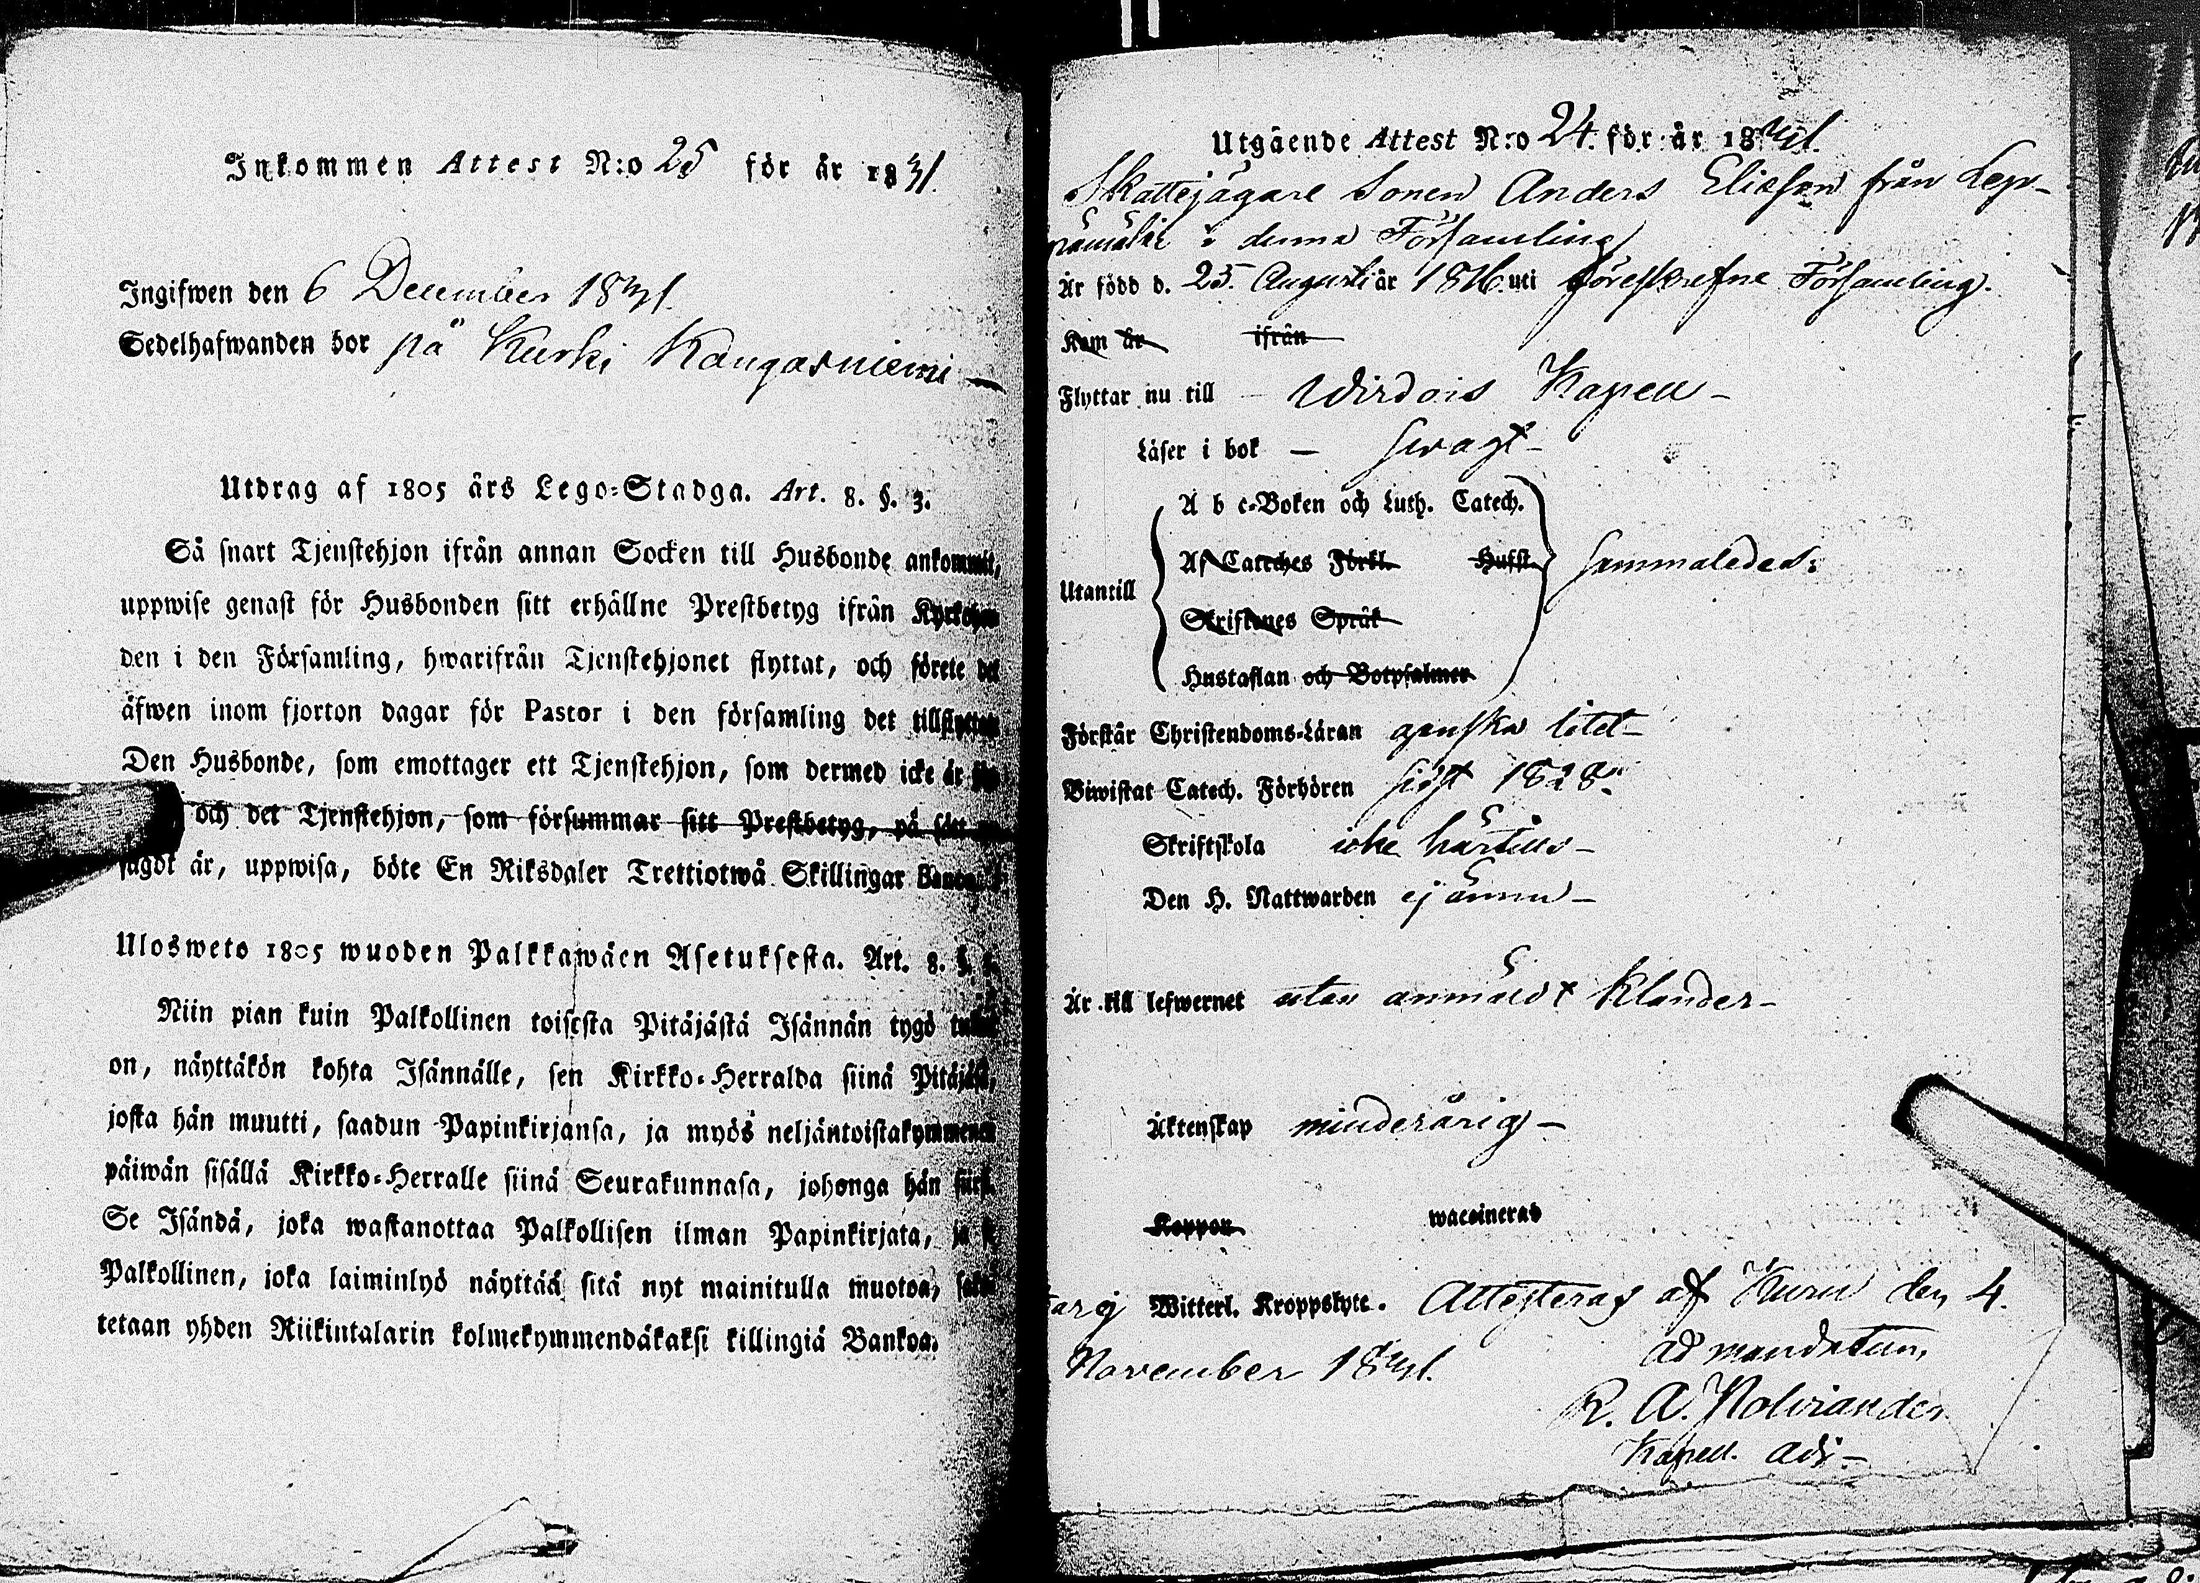 Inkommen Attest N:o 25 för år 1831.
Ingifwen den 6 December 1831.
Sedelhafwanden bor på Kurki Kangasniemi
Utdrag af 1805 års Lego-Stadga. Art. 8. §. 3.
Så snart Tjenstehjon ifrån annan Socken till Husbonde ankommit,
uppwise genast för Husbonden sitt erhållne Prestbetyg ifrån
den i den Församling, hwarifrån Tjenstehjonet flyttat, och förete det
äfwen inom fjorton dagar för Pastor i den församling det
Den Husbonde, som emottager ett Tjenstehjon, som dermed icke är
och det Tjenstehjon, som försummar sitt Prestbetyg, på sätt
sagdt är, uppwisa, böte En Riksdaler Trettiotwå Skillingar Banco.
Ulosweto 1805 wuoden Palkkawäen Asetuksesta. Art. 8. §.
Niin pian kuin Palkollinen toisesta Pitäjästä Isännän tygö
on, näyttäkön kohta Isännälle, sen Kirkko-Herralda siinä
josta hän muutti, saadun Papinkirjansa, ja myös neljäntoistakymmenen
päiwän sisällä Kirkko-Herralle siinä Seurakunnasa, johonga hän
Se Isändä, joka wastanottaa Palkollisen ilman Papinkirjata, ja
Palkollinen, joka laiminlyö näyttää sitä nyt mainitulla muotoa,
tetaan yhden Riikintalarin kolmekymmendäkaksi killingiä Bankoa.
Utgående Attest N:o 24. för år 1831.
Skattejägare Sonen Anders Eliasson från Lep-
i denna Församling
Är född d. 25. Augusti år 1816. uti föreskrefne Församling.
Kom år ifrån
Flyttar nu till Wirdois Kapell
Läser i bok — swagt
Utantill
A b c-Boken och Luth. Catech.
Af Cateches Förkl. Hufst.
Skriftenes Språk
Hustaflan och Botpsalmer
sammaledes.
Förstår Christendoms-Läran ganska litet
Biwistat Catech. Förhören sidst 1828.
Skriftskola icke härtills
Den H. Nattwarden ej ännu
Är till lefwernet utan anmäldt klander
Äktenskap minderårig
Koppor waccinerad
Witterl. Kroppslyte. Attesteras af Kuru den 4.
November 1831.
ad mandatum,
R. A. Molwiander
Kapell. adj.